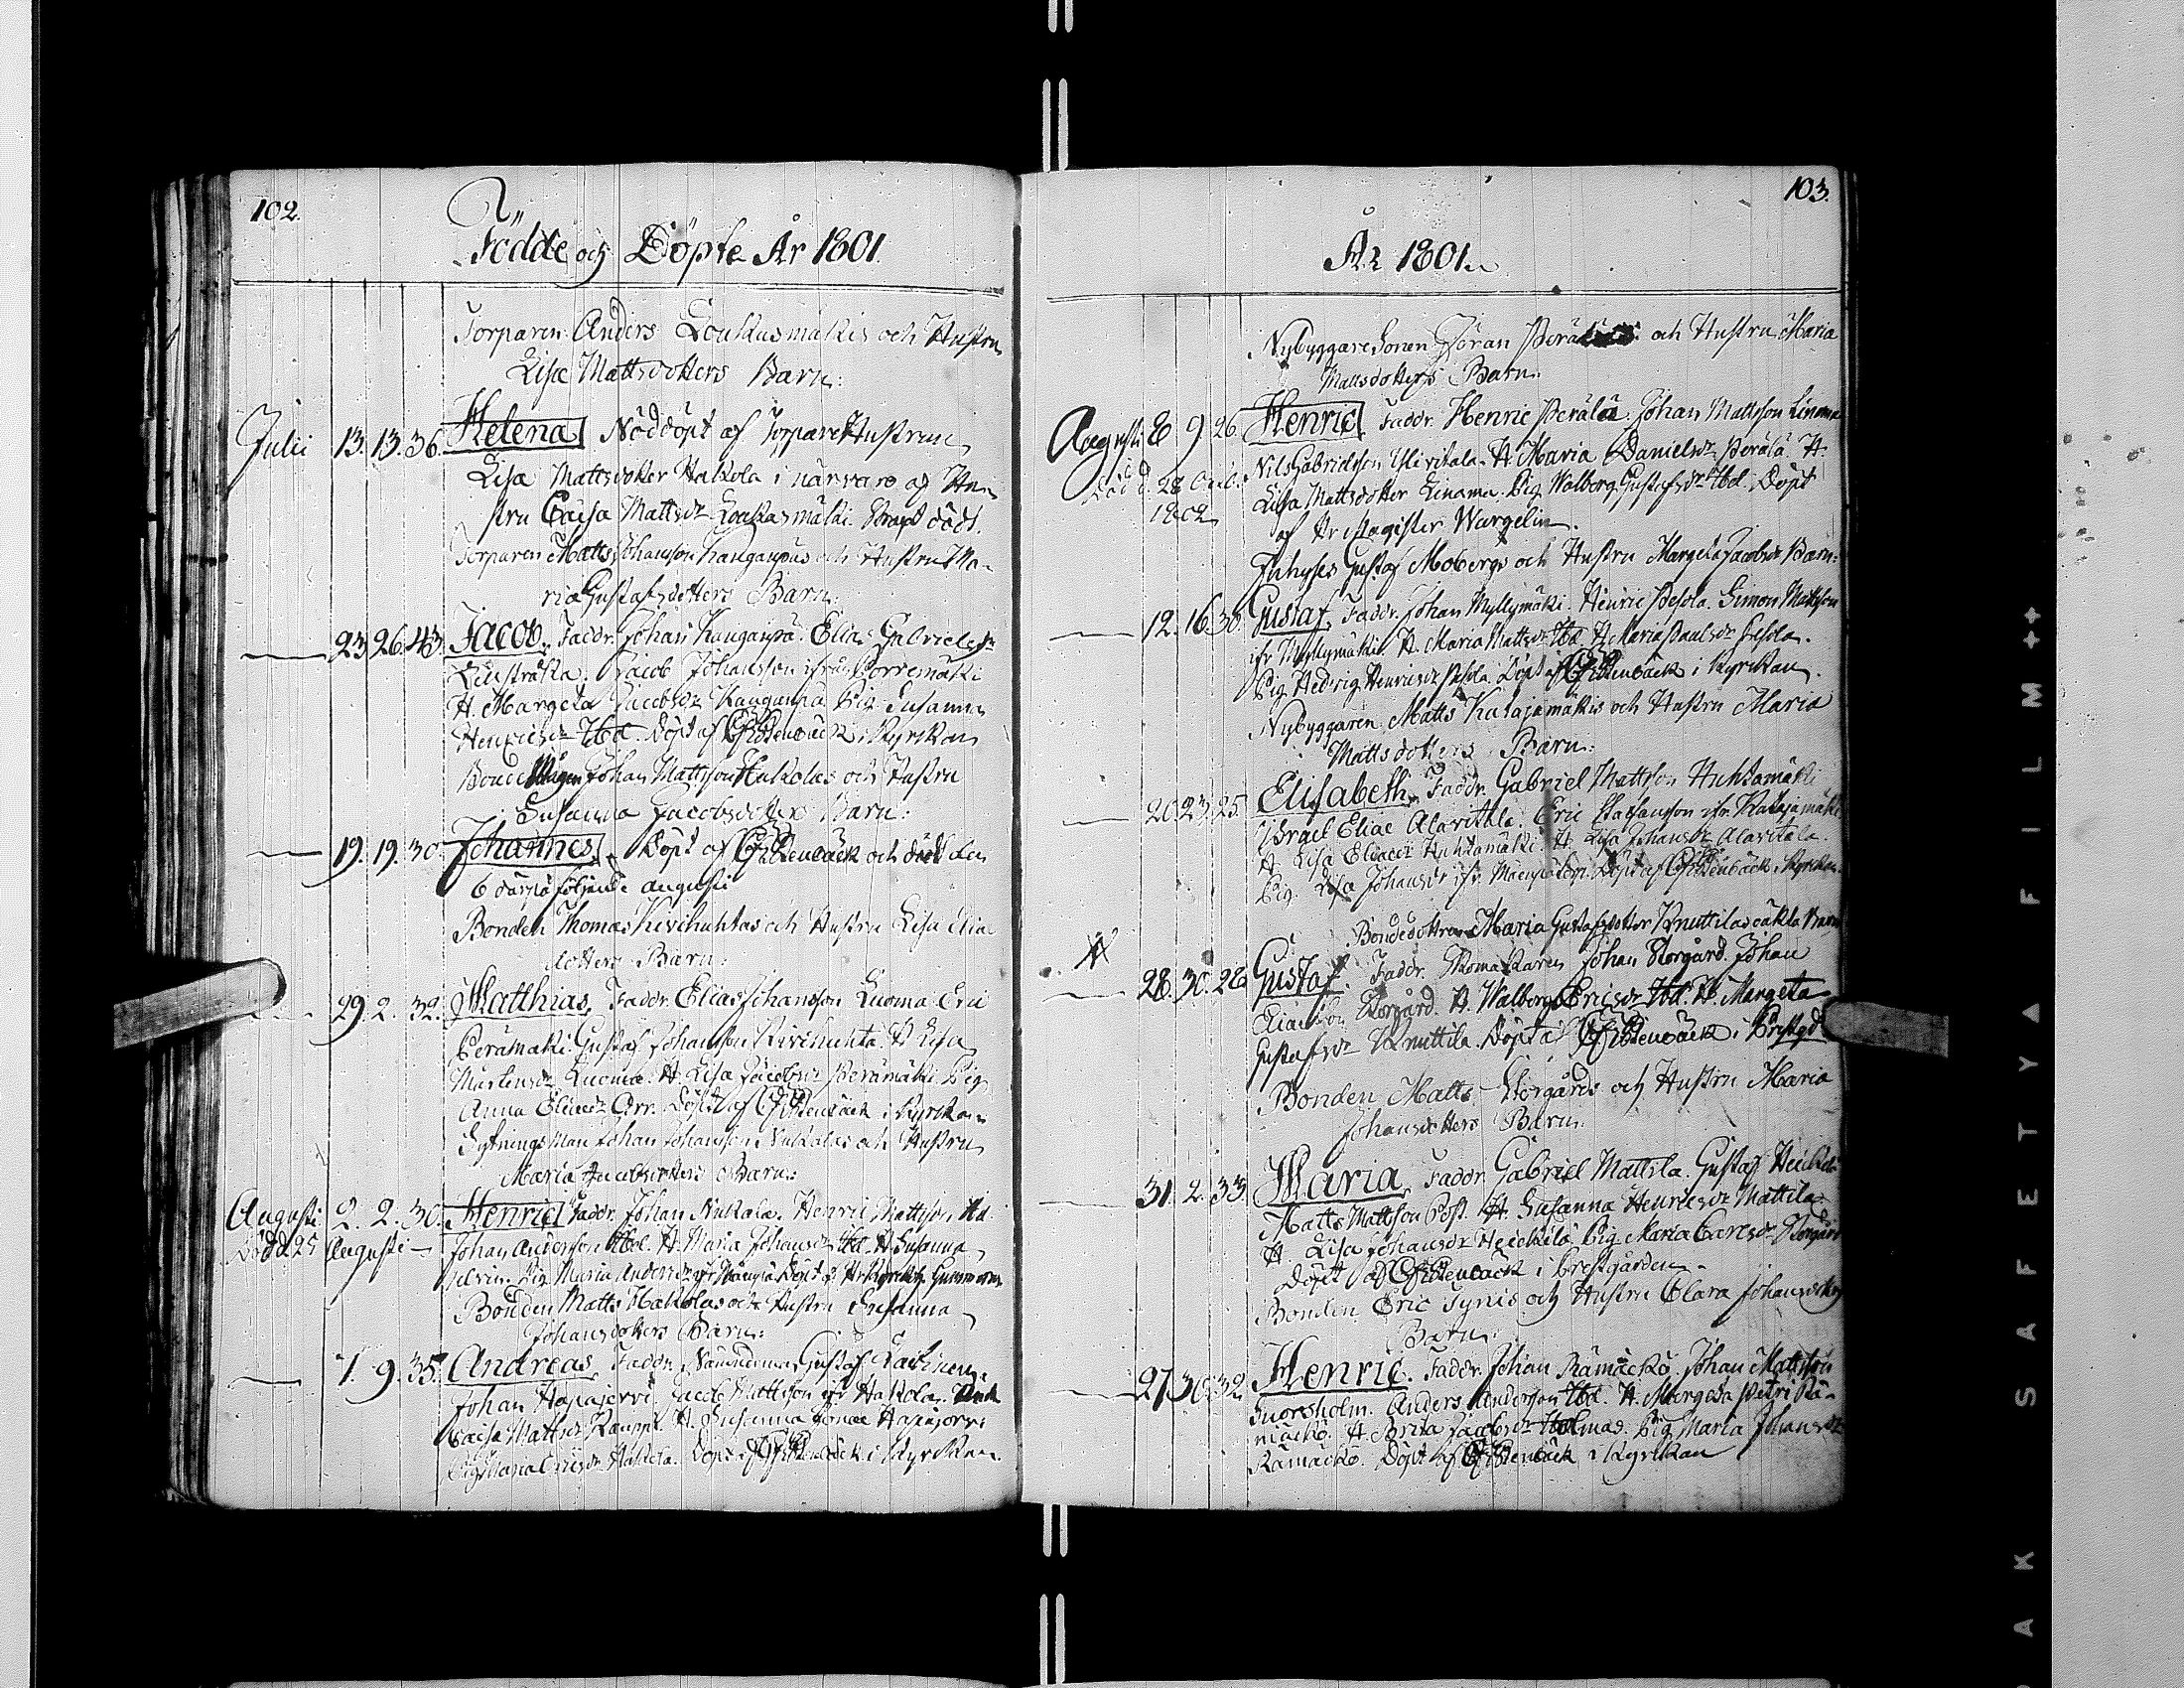 102.
Födde och Döpte År 1801.
Torparen Anders Loukasmäkis och Hustru
Lisa Mattsdotters Barn:
Julii 13. 13. 36. Helena Nöddöpt af Torpare Hustrun
Lisa Mattsdotter Hakola i närvaro af Hu-
stru Caisa Mattsdr Loukasmäki. Strax död.
Torparen Matts Johansson Kanganpäs och Hustru Ma-
ria Gustafsdotters Barn:
23. 26. 43. Jacob. Faddr. Johan Kanganpä. Elias Gabrielss.
Jacob Johansson ifrån Porremäki
H. Margeta Jacobsdr Kanganpä Pig. Susanna
Henricsdr Ibd. Döpt af i Kyrkan
Bonde Johan Mattsson Hakolas och Hustru
Susanna Jacobsdotters Barn:
19. 19. 30. Johannes. Döpt af och död den
6 därpåföljande Augusti
Bonden Thomas Kivihuhtas och Hustru Lisa Eliæ
dotters Barn:
29. 2. 32. Matthias. Faddr. Elias Johansson Luoma Eric
Perämäki. Gustaf Johansson Kivihuhta. H Lisa
Mårtensdr Luoma. H. Lisa Jacobsdr Perämäki. Pig.
Anna Eliædr Orr. Döpt af i Kyrkan
Sytningsman Johan Johansson Nukalas och Hustru
Maria Jacobsdotters Barn:
Augusti 2. 2. 30. Henric Faddr. Johan Nukala. Henric Mattsson Ibd.
Död d. 25 Augusti — Johan Andersson Ibd. H. Maria Johansdr Ibd. H Susanna
Pig. Maria Andersdr Döpt af
Bonden Matts Hakolas och Hustru Susanna
Johansdotters Barn:
7. 9. 35. Andreas. Faddr. Nämndeman Gustaf
Johan Hapajervi Jacob Mattsson ifr. Hakola.
Caisa Mattsdr Kauppi. H. Susanna Hapajervi
Pig. Maria Hakola. Döpt af i Kyrkan.
103.
År 1801.
Nybyggare Sonen Göran och Hustru Maria
Mattsdotters Barn:
Augusti 8 9 26. Henric Faddr. Henric Perälä. Johan Mattsson Linama
Död d. 28 Nils Gabrielsson Ylivitala. H. Maria Danielsdr Perälä H.
1802 Lisa Mattsdotter Linama. Pig. Walborg Gustafsdr Ibd. Döpt
af Hr Magister Wargelin.
Inhyses Gustaf Mobergs och Hustru Margeta Jacobsdr Barn:
12. 16. 30. Gustaf. Faddr. Johan Myllymäki. Henric Pesola. Simon Mattsson
ifr. Myllymäki. H. Maria Mattsdr Ibd. H Maria Paulsdr Pesola.
Pig. Hedvig Henricsdr Pesola. Döpt af i Kyrkan.
Nybyggaren Matts Katajamäkis och Hustru Maria
Mattsdotters Barn:
20. 23. 25. Elisabeth. Faddr. Gabriel Mattsson Huhtamäki
Israel Eliæ Alavitala. Eric ifr. Katajamäki
H Lisa Eliædr Huhtamäki. H. Lisa Johansdr Alavitala.
Pig. Lisa Johansdr ifr. Döpt af i Kyrkan.
Bondedottren Maria Gustafsdotter Knuttilas oäkta Barn
28. 30. 28 Gustaf. Faddr. Skomakaren Johan Storgård. Johan
Eliasson Storgård. H Walborg Ericsdr Ibd. H. Margeta
Gustafsdr Knuttila. Döpt af i Prestgd
Bonden Matts Storgårds och Hustru Maria
Johansdotters Barn:
31. 2. 33. Maria. Faddr. Gabriel Mattila. Gustaf Heickilä
Matts Mattsson Post. H. Susanna Henricsdr Mattila.
H. Lisa Johansdr Heickilä. Pig. Maria Carlsdr Storgård
Döpt af i Prestgården.
Bonden Eric Tynis och Hustru Clara Johansdotters
Barn:
27. 30. 32. Henric. Faddr. Johan Rämäckö. Johan Mattsson
Tuoresholm. Anders Andersson Ibd. H. Margeta Petri Rä-
mäckö. H. Brita Jacobsdr Holmas. Pig. Maria Johansdr
Rämäckö. Döpt af i Kyrkan
SAFETY FILM